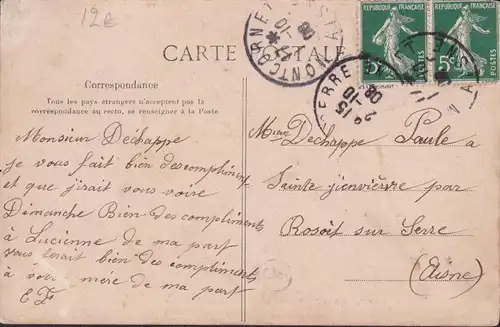 12€
CARTE POSTALE
Correspondance
Tous les pays étrangers n'acceptent pas la
correspondance au recto, se renseigner à la Poste
Monsieur Dechappe
je vous fait bien des compliments
et que j'irait vous voire
Dimanche Bien des compliments
à Lucienne de ma part
vous ferait bien des compliments
à votre mère de ma part
E F
REPUBLIQUE FRANÇAISE
POSTES
REPUBLIQUE FRANÇAISE
5c
POSTES
MONTCORNET
08
2e 15-10
08
Dechappe Paule a
Sainte jienvièvre par
Rosoit sur Serre
(Aisne)